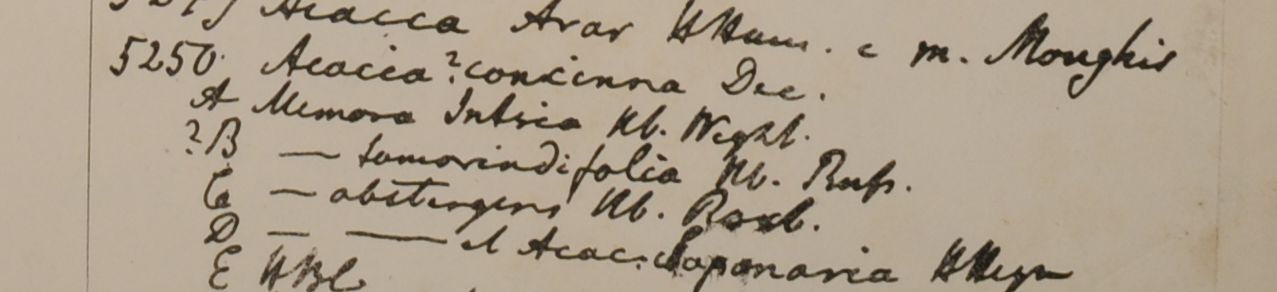 5249 Acacia Arar HHam. e m. Monghir
5250. Acacia? concinna Dec.
A Memora Intsia Hb. Wight.
?B — tamarindifolia Hb. Russ.
C — abstergens Hb. Roxb.
D — — et Acac. Saponaria HHeyn
E HBC